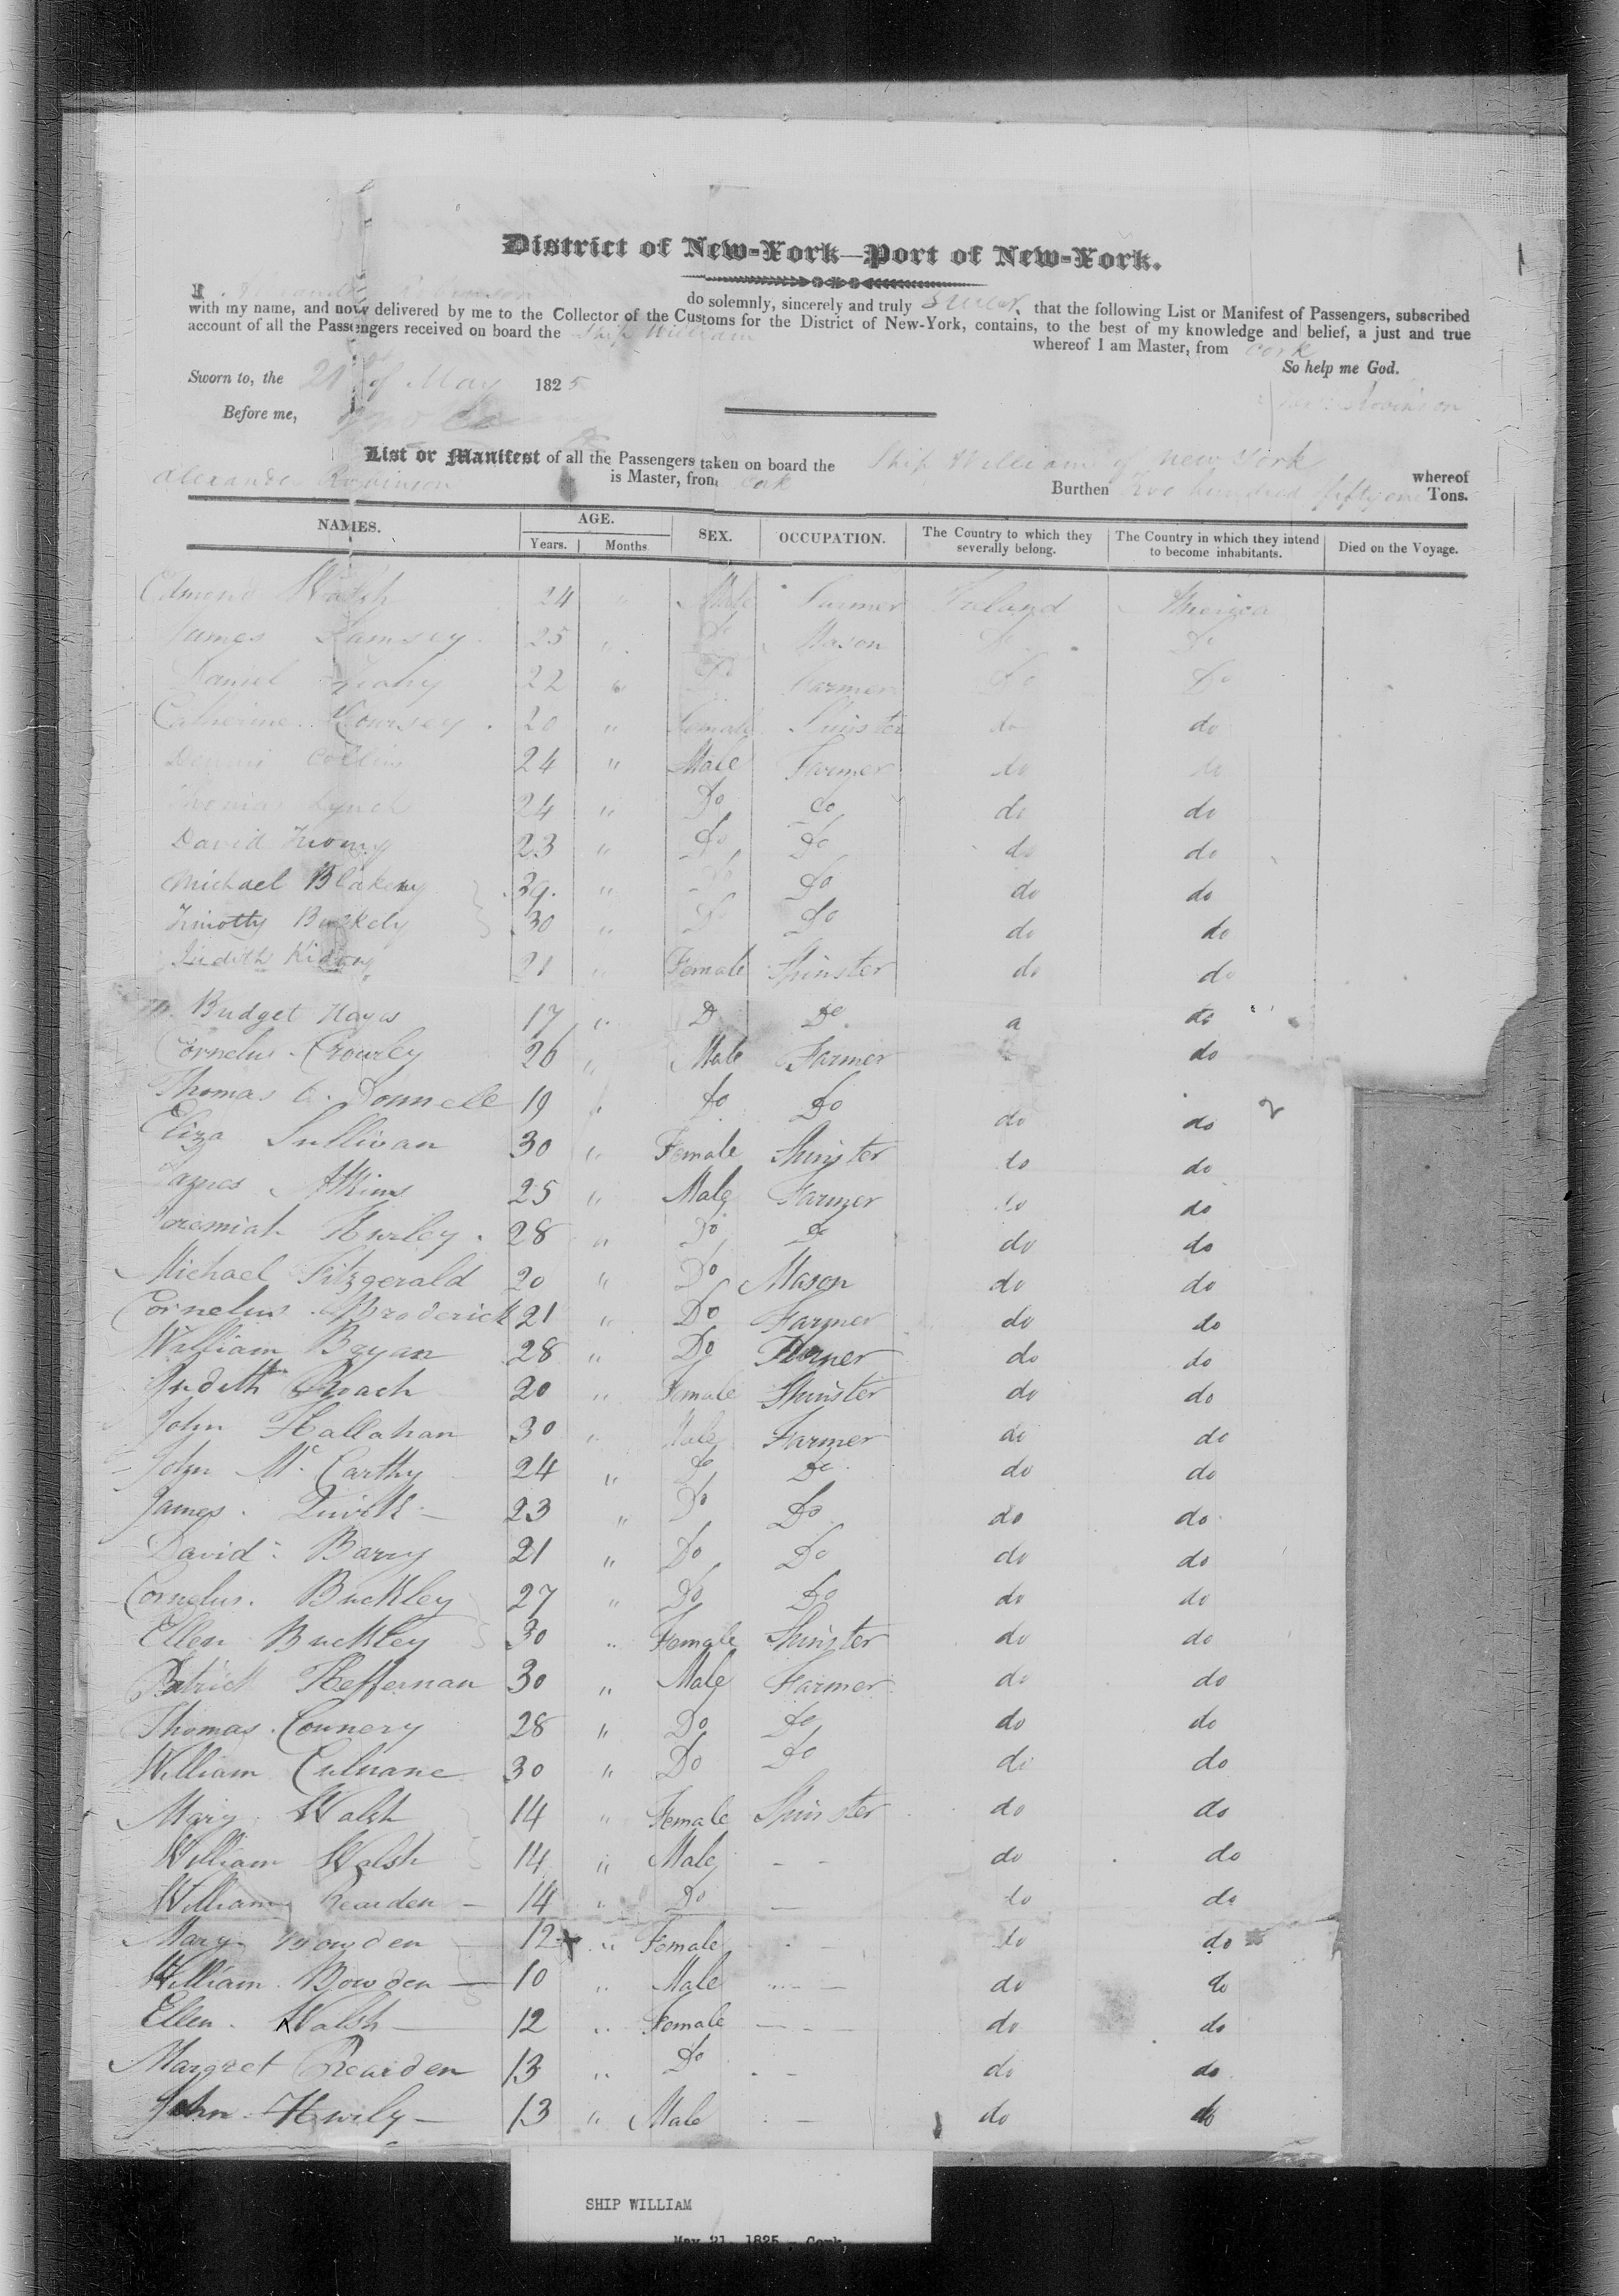 District of New-York—Port of New-York.
I do solemnly, sincerely and truly swear, that the following List or Manifest of Passengers, subscribed
with my name, and now delivered by me to the Collector of the Customs for the District of New-York, contains, to the best of my knowledge and belief, a just and true
account of all the Passengers received on board the Ship William whereof I am Master, from Cork
So help me God.
Sworn to, the 21st of May 1825
Before me,
Robinson
List or Manifest of all the Passengers taken on board the Ship William of New York whereof
Alexander Robinson is Master, from Cork Burthen two hundred fifty one Tons.
NAMES. AGE. Years. Months SEX. OCCUPATION. The Country to which they severally belong. The Country in which they intend to become inhabitants. Died on the Voyage.
Edmond Walsh 24 " Male Farmer Ireland America
James Ramsey 25 " Do Mason Do Do
Daniel 22 " Do Farmer Do Do
Catherine 20 " Female Spinster do do
Dennis Collins 24 " Male Farmer do do
Thomas Lynch 24 " Do do do do
David 23 " Do Do do do
Michael Blakeny 39. " Do Do do do
Timothy Buckely 30 " Do Do do do
Judith 21 " Female Spinster do do
Bridget Hayes 17 " D Do do
Cornelus Crowley 26 " Male Farmer do
Thomas O. Donnell 19 " Do Do do do 2
Eliza Sullivan 30 " Female Spinster do do
James Atkins 25 " Male Farmer do do
Jeremiah Hurley. 28 " Do Do do do
Michael Fitzgerald 20 " Do Mason do do
Cornelus Broderick 21 " Do Farmer do do
William Bryan 28 " Do Farmer do do
Judith Roach 20 " Female Spinster do do
John Hallahan 30 " Male Farmer do do
John Mc Carthy 24 " Do Do do do
James. 23 " Do Do do do
David Barry 21 " Do Do do do
Cornelus. Buckley 27 " Do Do do do
Ellen Buckley 30 " Female Spinster do do
Patrick Heffernan 30 " Male Farmer do do
Thomas. Connery 28 " Do Do do do
William Culnane 30 " Do Do do do
Mary Walsh 14 " Female Spinster do do
William Walsh 14 " Male - - do do
William Rearden — 14 " Do — do do
Mary Bowden 12 " Female - — do do
William. Bowden — 10 " Male — do do
Ellen. Walsh — 12 " Female — - - do do
Margret Rearden 13 " Do - do do
John. Hurly — 13 " Male - do do
SHIP WILLIAM
May 21, 1825 - Cork